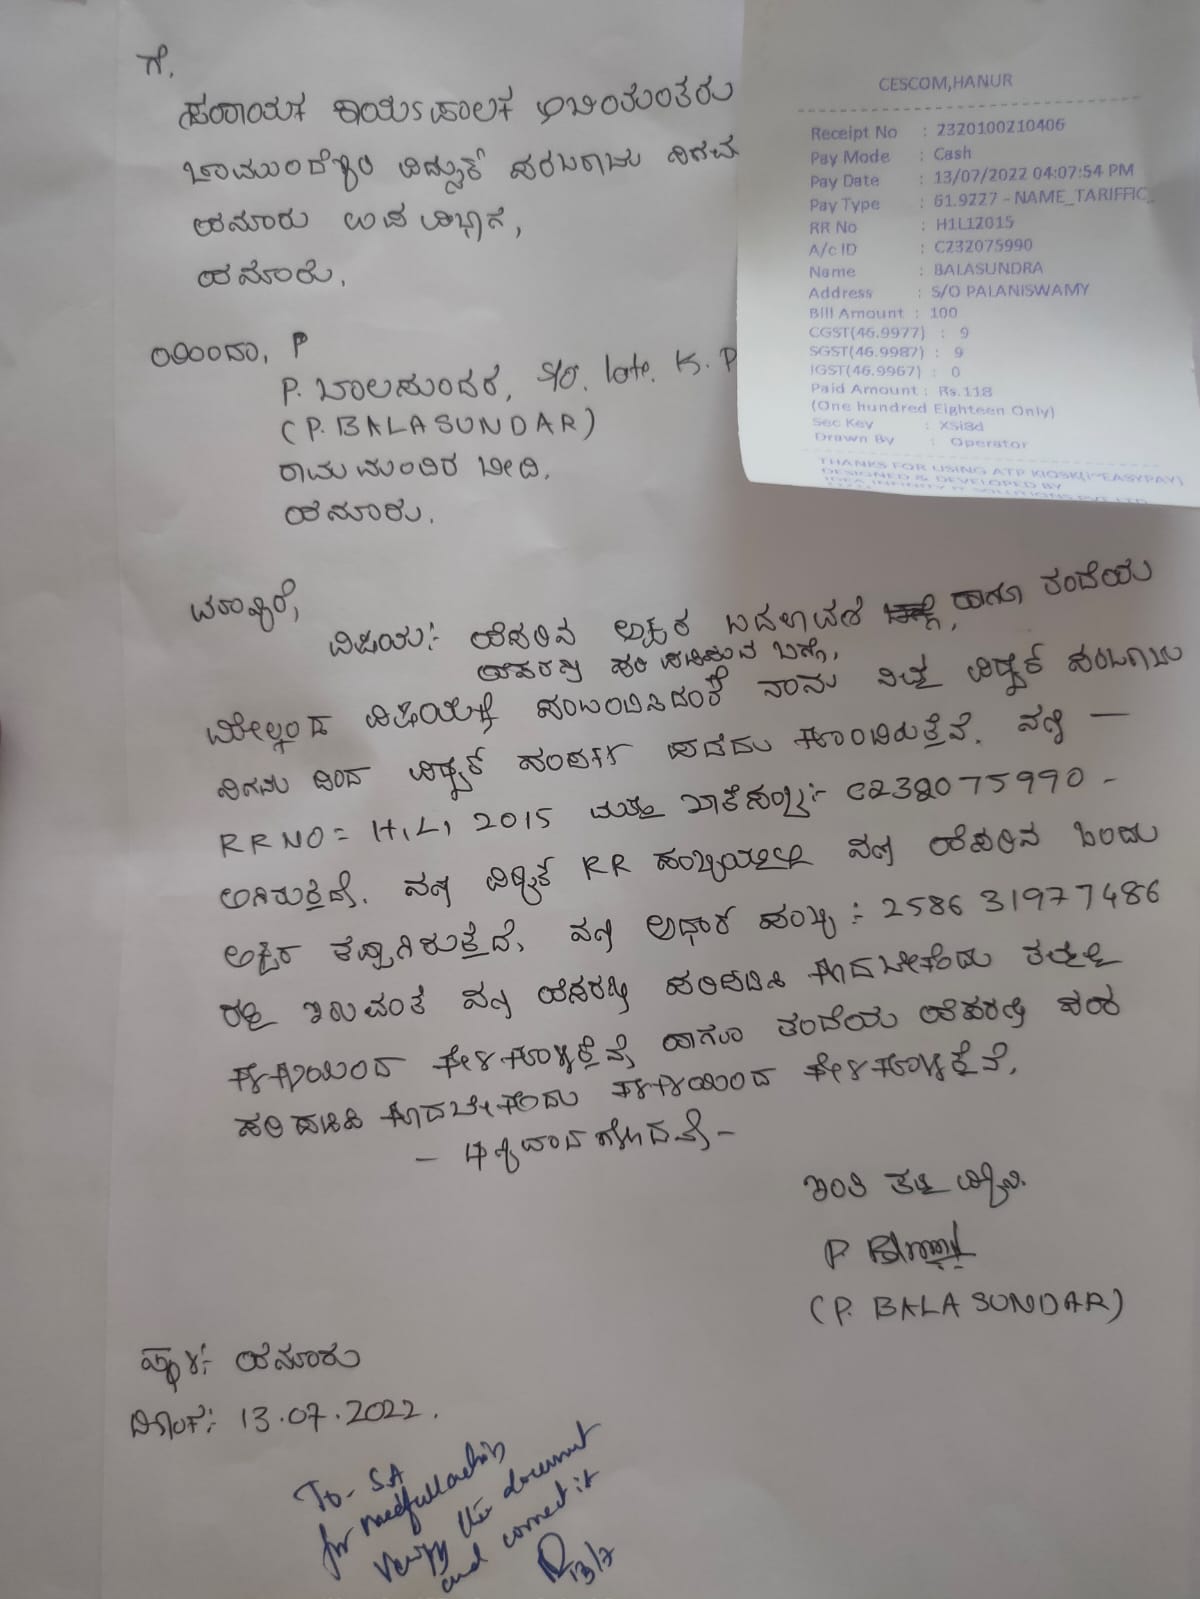 ಗೆ,
ಸಹಾಯಕ ಕಾರ್ಯಪಾಲಕ ಅಭಿಯಂತರರು
ಚಾಮುಂಡೇಶ್ವರಿ ವಿದ್ಯುತ್ ಸರಬರಾಜು ನಿಗಮ
ಹನೂರು ಉಪ ವಿಭಾಗ,
ಹನೂರು.
CESCOM,HANUR
Receipt No : 2320100210406
Pay Mode : Cash
Pay Date : 13/07/2022 04:07:54 PM
Pay Type : 61.9227 - NAME_TARIFFIC_
RR No : H1L12015
A/c ID : C232075990
Name : BALASUNDRA
Address : S/O PALANISWAMY
Bill Amount : 100
CGST(46.9977) : 9
SGST(46.9987) : 9
IGST(46.9967) : 0
Paid Amount : Rs.118
(One hundred Eighteen Only)
Sec Key : XSi8d
Drawn By : Operator
THANKS FOR USING ATP KIOSK(I~EASYPAY)
DESIGNED & DEVELOPED BY
IDEA INFINITY IT SOLUTIONS PVT LTD
ಯಿಂದಾ, P
P. ಬಾಲಸುಂದರ, S/O. late. K. P
(P. BALASUNDAR)
ರಾಮ ಮಂದಿರ ಬೀದಿ.
ಹನೂರು.
ಮಾನ್ಯರೆ,
ವಿಷಯ:- ಹೆಸರಿನ ಅಕ್ಷರ ಬದಲಾವಣೆ ಹಾಗೂ ತಂದೆಯ
ಹೆಸರನ್ನು ಸರಿ ಪಡಿಸುವ ಬಗ್ಗೆ,
ಮೇಲ್ಕಂಡ ವಿಷಯಕ್ಕೆ ಸಂಬಂಧಿಸಿದಂತೆ ನಾನು ನಿಮ್ಮ ವಿದ್ಯುತ್ ಸರಬರಾಜು
ನಿಗಮ ದಿಂದ ವಿದ್ಯುತ್ ಸಂಪರ್ಕ ಪಡೆದು ಕೊಂಡಿರುತ್ತೆನೆ. ನನ್ನ —
RR NO = H1L1 2015 ಮತ್ತು ಖಾತೆ ಸಂಖ್ಯೆ:- C232075990 -
ಆಗಿರುತ್ತದೆ. ನನ್ನ ವಿದ್ಯುತ್ RR ಸಂಖ್ಯೆಯಲ್ಲಿ ನನ್ನ ಹೆಸರಿನ ಒಂದು
ಅಕ್ಷರ ತಪ್ಪಾಗಿರುತ್ತದೆ, ನನ್ನ ಆಧಾರ್ ಸಂಖ್ಯೆ :- 2586 3197 7486
ರಲ್ಲಿ ಇರುವಂತೆ ನನ್ನ ಹೆಸರನ್ನು ಸರಿಪಡಿಸಿ ಕೊಡಬೇಕೆಂದು ತಮ್ಮಲ್ಲಿ
ಕಳಕಳಿಯಿಂದ ಕೇಳಿಕೊಳ್ಳುತ್ತೆನೆ ಹಾಗೂ ತಂದೆಯ ಹೆಸರನ್ನು ಸಹ
ಸರಿ ಪಡಿಸಿ ಕೊಡಬೇಕೆಂದು ಕಳಕಳಿಯಿಂದ ಕೇಳಿಕೊಳ್ಳುತ್ತೆನೆ.
- ಧನ್ಯವಾದಗಳೊಂದಿಗೆ -
ಇಂತಿ ತಮ್ಮ ವಿಶ್ವಾಸಿ.
(P. BALA SUNDAR)
ಸ್ಥಳ:- ಹನೂರು
ದಿನಾಂಕ:- 13.07.2022.
To- SA
for needfull action
verify the document
and correct it
13/7